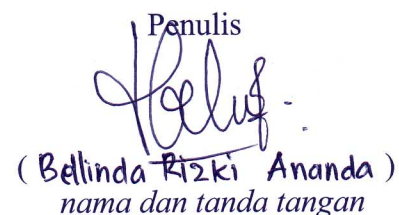 Penulis
( Bellinda Rizki Ananda )
nama dan tanda tangan